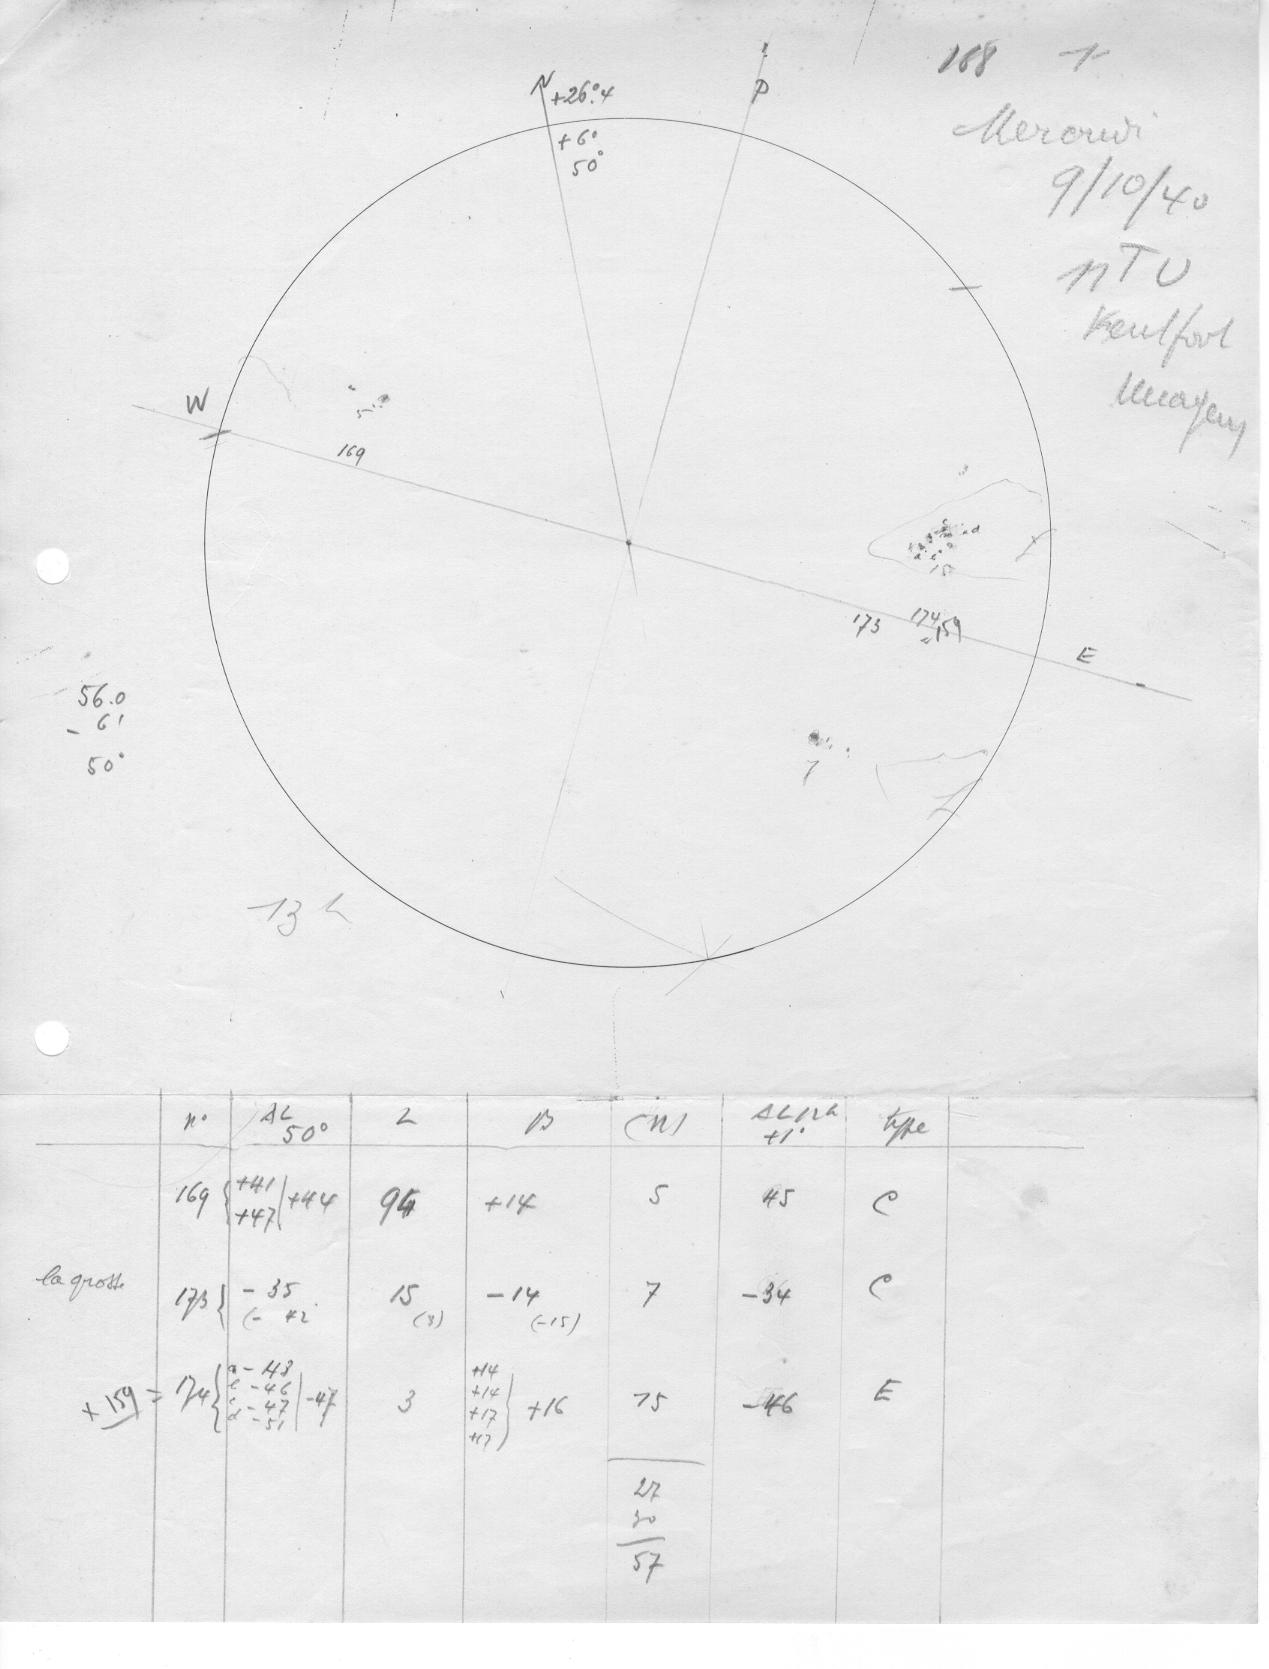 188
N
+26°.4
P
+6°
50°
9/10/40
11 T U
W
5
169
15
173
174
159
E
56.0
- 6
50°
7
13 h
n°
ΔL
50°
L
B
(N)
ΔL 12h
+1°
type
169
+41
+47
+44
94
+14
5
45
C
la grosse
173
- 35
(- 42
15
(8)
-14
(-15)
7
-34
C
+ 159 =
174
a -43
b -46
c -47
d -51
-47
3
+14
+14
+17
+17
+16
15
-46
E
27
30
57